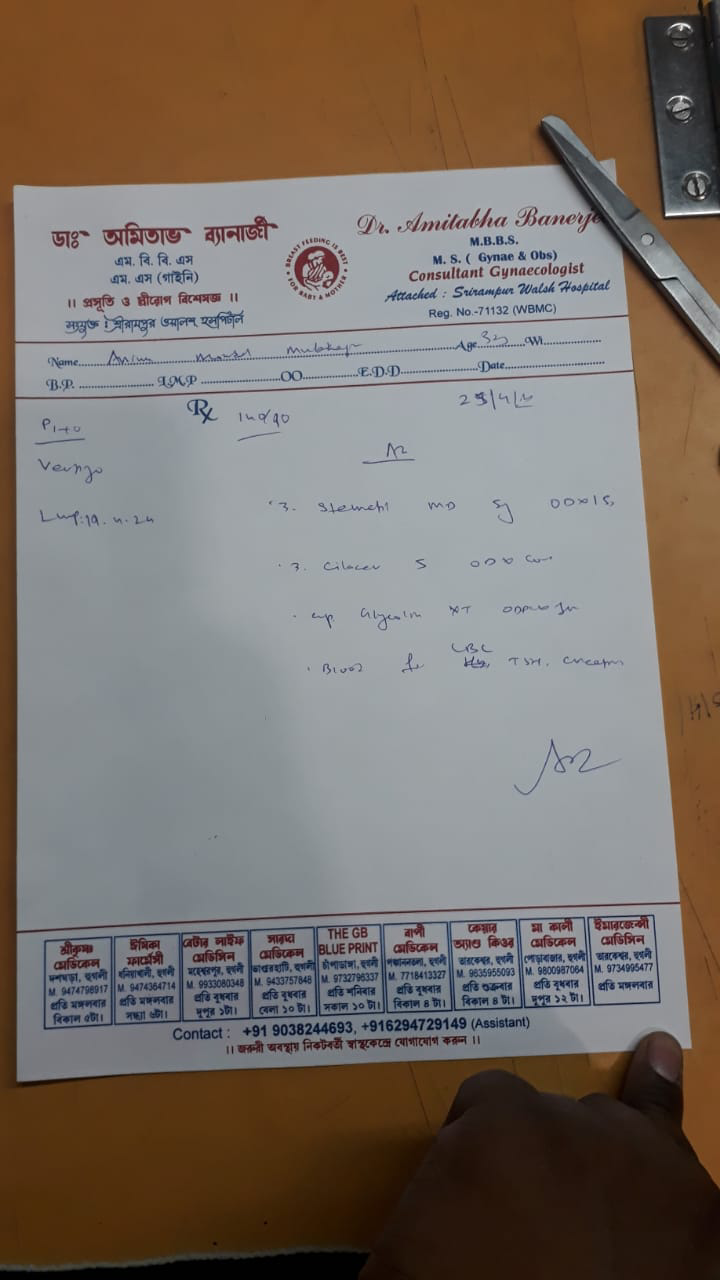 ডাঃ অমিতাভ ব্যানার্জী
এম. বি. বি. এস
এম. এস (গাইনি)
।। প্রসূতি ও স্ত্রীরোগ বিশেষজ্ঞ ।।
সংযুক্ত : শ্রীরামপুর ওয়ালশ হসপিটাল
BREAST FEEDING IS BEST
FOR BABY & MOTHER
Dr. Amitabha Banerje
M.B.B.S.
M. S. ( Gynae & Obs)
Consultant Gynaecologist
Attached : Srirampur Walsh Hospital
Reg. No.-71132 (WBMC)
Name Age Wt.
B.P. L.M.P OO E.D.D. Date
P1+0
Rx 140/90
Vertigo
LMP: 19. 4. 24
Stemetil MD
Cilacar 5 OD x
cap
Blood for CBC
TSH. Creatin
শ্রীকৃষ্ণ মেডিকেল
দশঘড়া, হুগলী
M. 9474798917
প্রতি মঙ্গলবার
বিকাল ৫টা।
ঈষিকা ফার্মেসী
ধনিয়াখালী, হুগলী
M. 9474364714
প্রতি মঙ্গলবার
সন্ধ্যা ৬টা।
বেটার লাইফ মেডিসিন
মহেশ্বরপুর, হুগলী
M. 9933080348
প্রতি বুধবার
দুপুর ১টা।
সারদা মেডিকেল
ভান্ডারহাটি, হুগলী
M. 9433757848
প্রতি বুধবার
বেলা ১০ টা।
THE GB
BLUE PRINT
চাঁপাডাঙ্গা, হুগলী
M. 9732796337
প্রতি শনিবার
সকাল ১০ টা।
বাপী মেডিকেল
M. 7718413327
প্রতি বুধবার
বিকাল ৪ টা।
কেয়ার অ্যান্ড কিওর
তারকেশ্বর, হুগলী
M. 9635955093
প্রতি শুক্রবার
বিকাল ৪ টা।
মা কালী মেডিকেল
পোড়াবাজার, হুগলী
M. 9800987064
প্রতি বুধবার
দুপুর ১২ টা।
ইমারজেন্সী মেডিসিন
তারকেশ্বর, হুগলী
M. 9734995477
প্রতি মঙ্গলবার
Contact : +91 9038244693, +916294729149 (Assistant)
।। জরুরী অবস্থায় নিকটবর্তী স্বাস্থ্যকেন্দ্রে যোগাযোগ করুন ।।